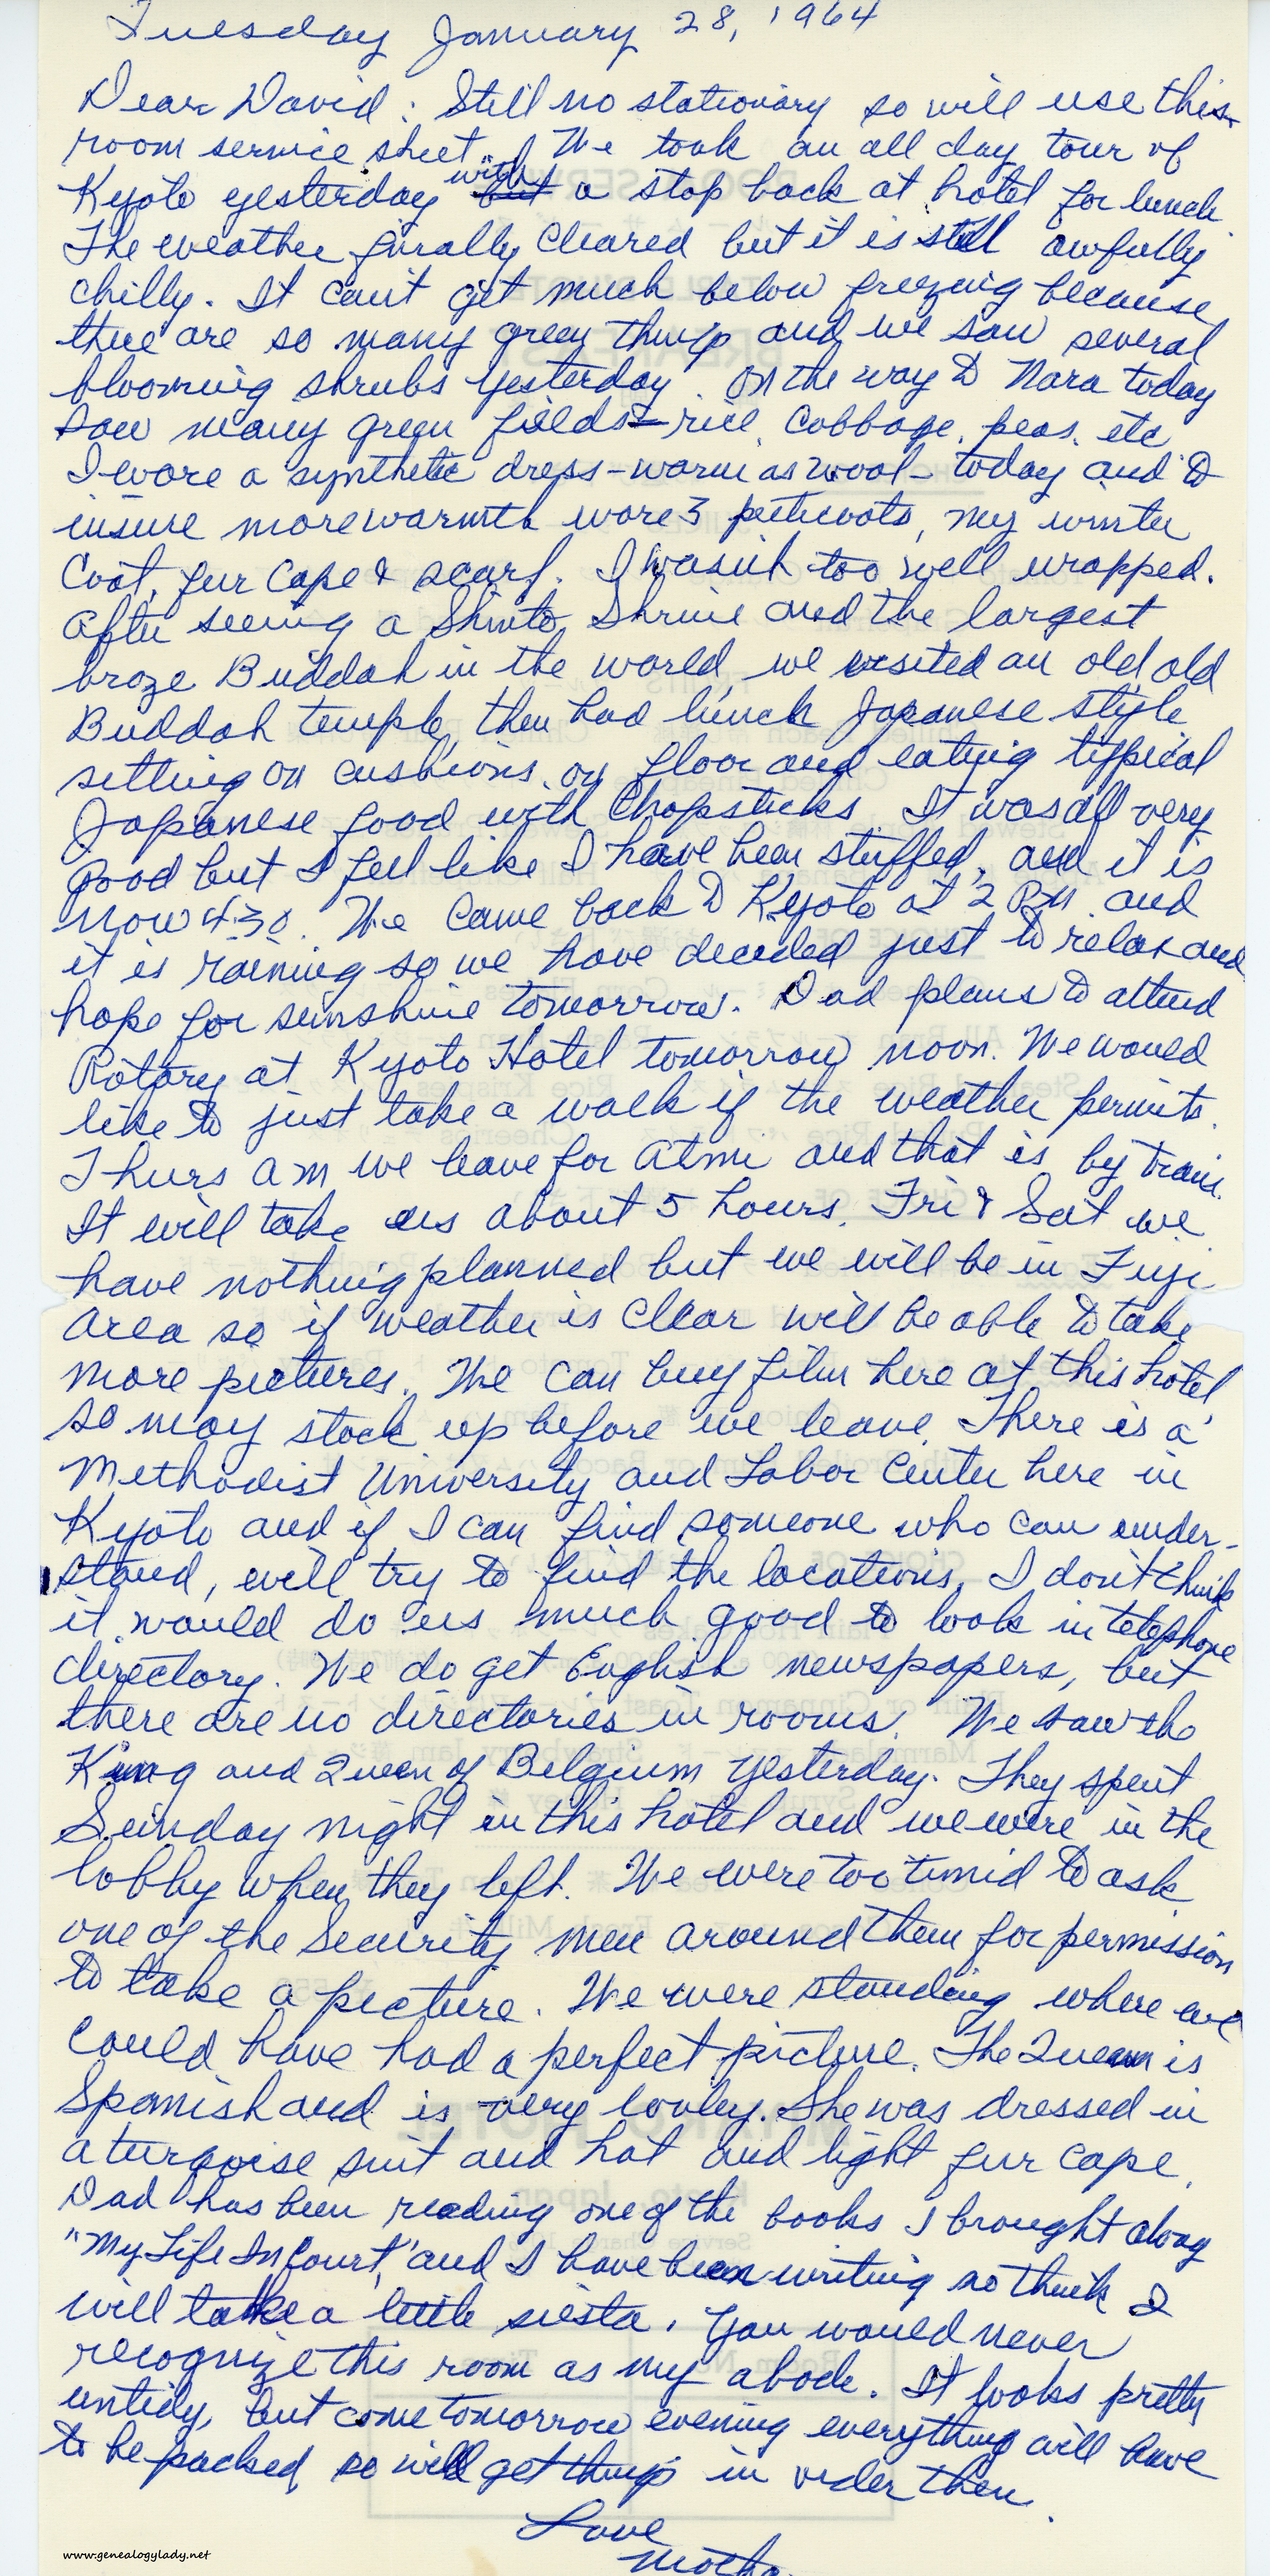 Tuesday January 28, 1964
Dear David: Still no stationary so will use this
room service sheet. We took an all day tour of
Kyoto yesterday with a stop back at hotel for lunch.
The weather finally cleared but it is still awfully
chilly. It can't get much below freezing because
there are so many green things and we saw several
blooming shrubs yesterday. On the way to Nara today
saw many green fields - rice, cabbage, peas, etc
I wore a synthetic dress - warm as wool - today and to
insure more warmth wore 3 petticoats, my winter
coat, fur cape & scarf. I wasn't too well wrapped.
After seeing a Shinto Shrine and the largest
broze Buddah in the world, we visited an old old
Buddah temple, then had lunch Japanese style
sitting on cushions on floor and eating typical
Japanese food with chopsticks. It was all very
good but I feel like I have been stuffed, and it is
now 4:30. We came back to Kyoto at 2 PM and
it is raining so we have decided just to relax and
hope for sunshine tomorrow. Dad plans to attend
Rotary at Kyoto Hotel tomorrow noon. We would
like to just take a walk if the weather permits.
Thurs am we leave for Atmi and that is by train.
It will take us about 5 hours. Fri & Sat we
have nothing planned but we will be in Fuji
area so if weather is clear will be able to take
more pictures. We can buy film here at this hotel
so may stock up before we leave. There is a
Methodist University and Labor Center here in
Kyoto and if I can find someone who can under-
stand, will try to find the locations. I don't think
it would do us much good to look in telephone
directory. We do get English newspapers, but
there are no directories in rooms. We saw the
King and Queen of Belgium yesterday. They spent
Sunday night in this hotel and we were in the
lobby when they left. We were too timid to ask
one of the Security men around them for permission
to take a picture. We were standing where we
could have had a perfect picture. The Queen is
Spanish and is very lovley. She was dressed in
a turqoise suit and hat and light fur cape.
Dad has been reading one of the books I brought along
"My Life In Court," and I have been writing so think I
will take a little siesta. You would never
recognize this room as my abode. It looks pretty
untidy, but come tomorrow evening everything will have
to be packed, so will get things in order then.
Love
Mother
www.genealogylady.net